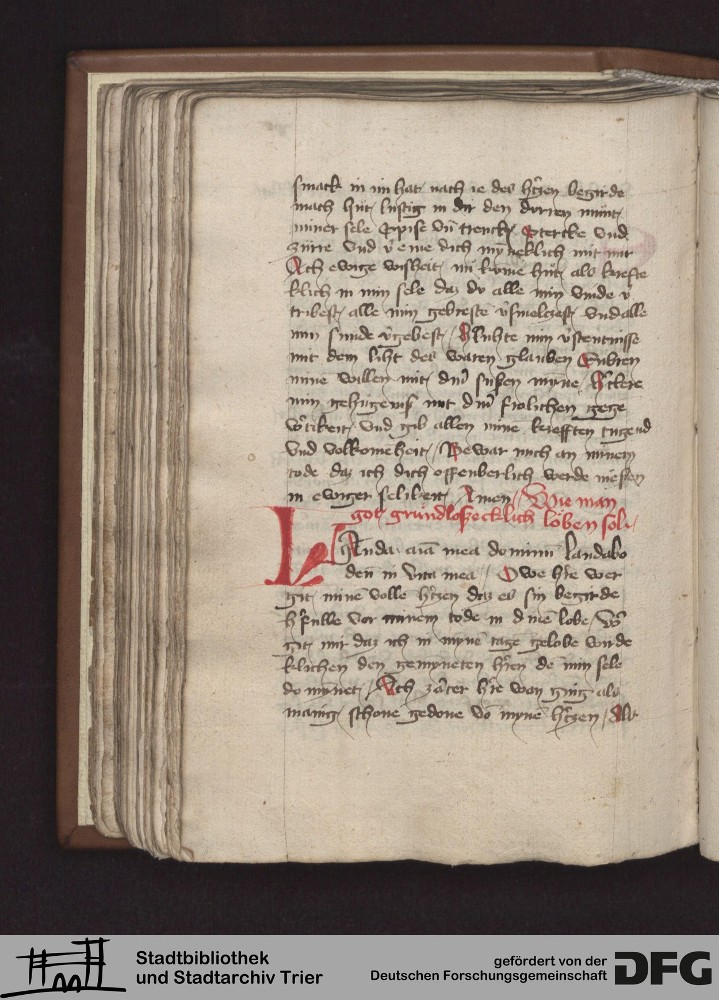 smack in im hat nach ie des h'tzen begirde
mach hüt lustig in dir den dorren munt
miner sele Spise vn̄ trenck Stercke vnd
zirre vnd v'eine dich myneklich mit mir
Ach ewige wisheit nu kume hüt als krefte
klich in min sele daz du alle min vinde v'
tribest alle min gebreste v'smelzest vnd alle
min sunde v'gebest Erluhte min v'stentnisse
mit dem liht des waren glauben Enbren
mine willen mit din' susen myne Erclere
min gehugenis mit din' frolichen gege
w'tikeit vnd gib allen mine krefften tugend
vnd volkomeheit Bewar mich an minem
tode daz ich dich offenberlich werde niesen
in ewiger selikeit Amen Wie man
got grundloßecklich loben soll
LAuda aīa mea dominū laudabo
deū in vita mea Owe h're wer
git minē volle h'tzen daz es sin begirde
h'fulle vor minem tode in dinē lobe W'
git mir daz ich in mynē tage gelobe wirde
klichen den gemynneten h'ren de min sele
do mynet Ach zarter h're wan ging als
manig schone gedone vō mynē h'tzen Als
Stadtbibliothek
und Stadtarchiv Trier
gefördert von der
Deutschen Forschungsgemeinschaft
DFG